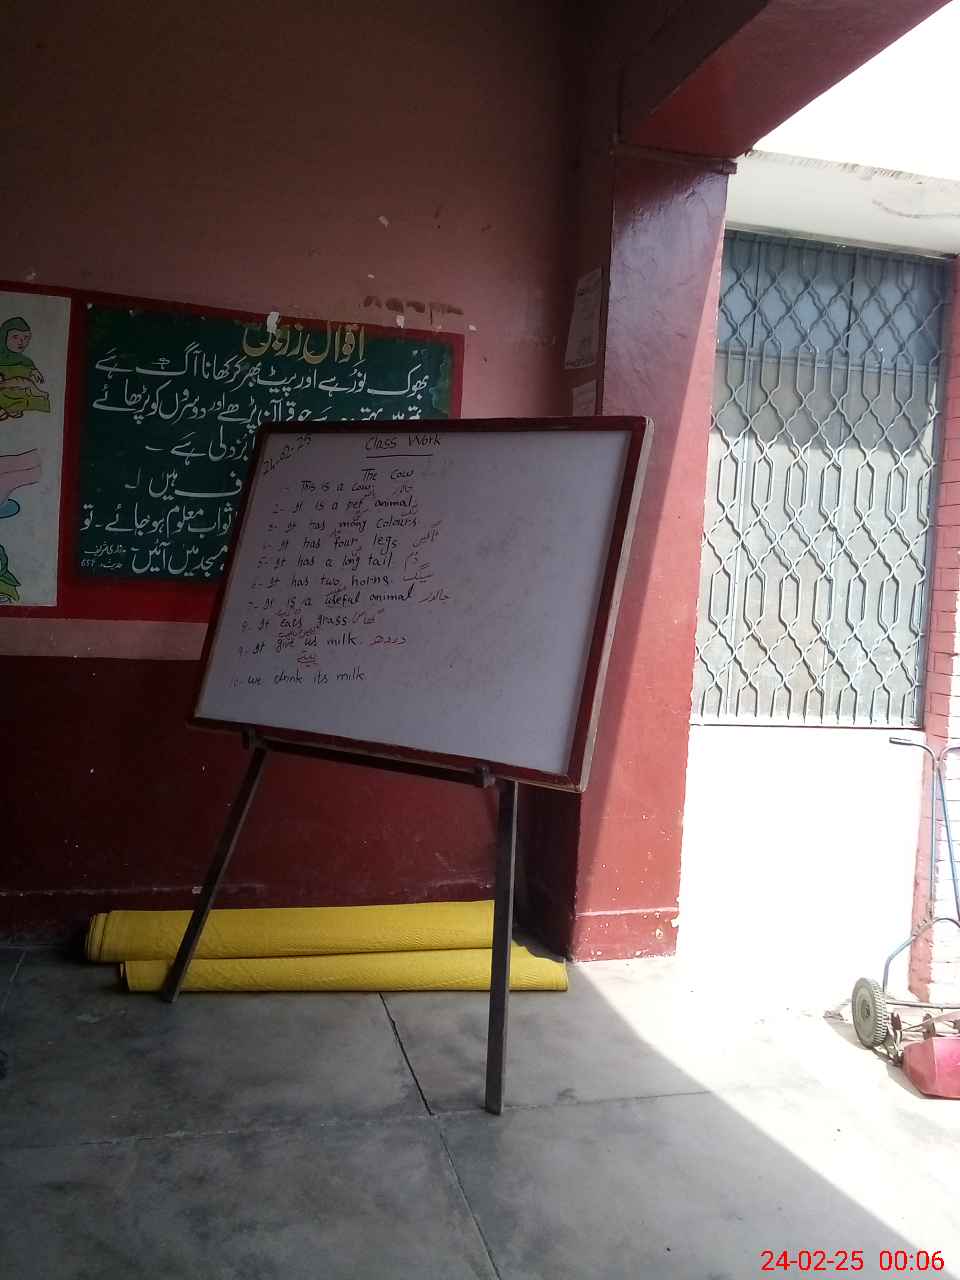 اقوال زریں
بھوک نور ہے اور پیٹ بھر کر کھانا آگ ہے
جو قرآن پڑھے اور دوسروں کو پڑھائے
بزدلی ہے -
ہیں
ثواب معلوم ہو جائے - تو
مسجد میں آئیں -
657
24-02-25
Class Work
The Cow
1- This is a cow. گائے
2- It is a pet animal.
3- It has many colours. رنگ
4- It has four legs ٹانگیں
5- It has a long tail. دم
6- It has two horns. سینگ
7- It is a useful animal جانور
8- It eats grass گھاس
9- It give us milk. دودھ
پیتے
10- we drink its milk
24-02-25 00:06